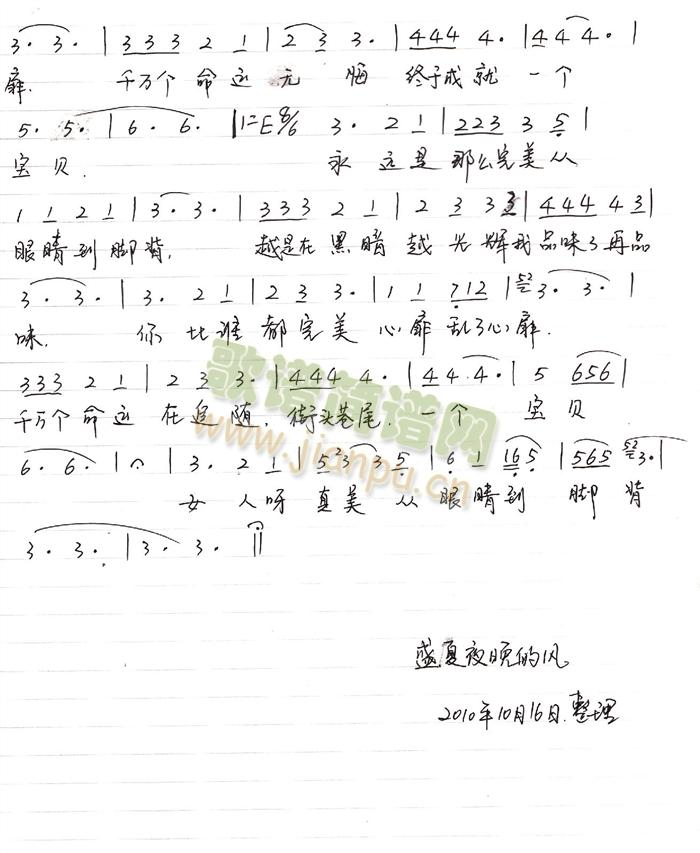 3· 3· | 333 2 1 | 2 3 3· | 444 4· | 44 4· |
扉. 千万个 命运 无 悔 终于成就 一个
5· 5· | 6· 6· | 1=E 6/8 3· 2 1 | 223 3 5 |
宝贝. 永远是 那么完美从
1 1 2 1 | 3· 3· | 333 2 1 | 2 3 3 3 | 444 4 3 |
眼睛到 脚背, 越是在 黑暗 越 光辉我 品味了再品
3· 3· | 3· 2 1 | 2 3 3· | 1 1 712 | 52 3· 3· |
味. 你 比谁 都完美 心扉 乱了心扉.
333 2 1 | 2 3 3· | 444 4· | 44 4· | 5 656 |
千万个 命运 在追随, 街头巷尾. 一个 宝贝
6· 6· | · | 3· 2 1 | 5 2 3 3 5 | 6 1 165 | 565 52 3· |
女 人呀 真美 从 眼睛到 脚 背
3· 3· | 3· 3· ||
歌谱简谱网
www.jianpu.cn
盛夏夜晚的风
2010年10月16日.整理